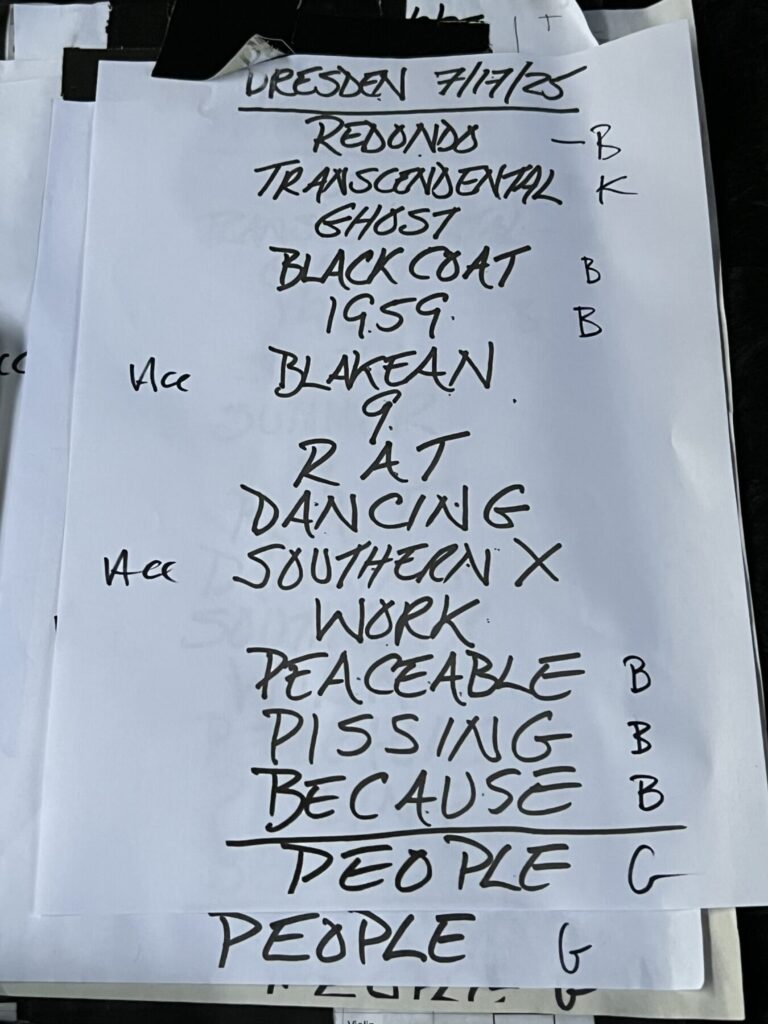 DRESDEN 7/17/25
REDONDO — B
TRANSCENDENTAL K
GHOST
BLACK COAT B
1959. B
BLAKEAN
9.
RAT
DANCING
SOUTHERN X
WORK
PEACEABLE B
PISSING B
BECAUSE B
PEOPLE G
PEOPLE G